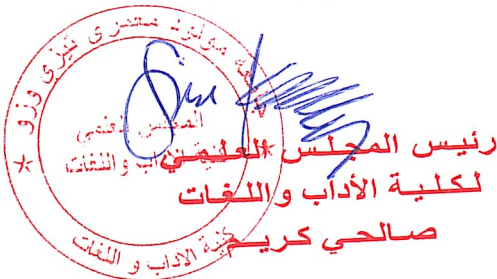 جامعة مولود معمري تيزي وزو
المجلس العلمي
كلية الآداب واللغات
رئيس المجلس العلمي
لكلية الأداب واللغات
صالحي كريم